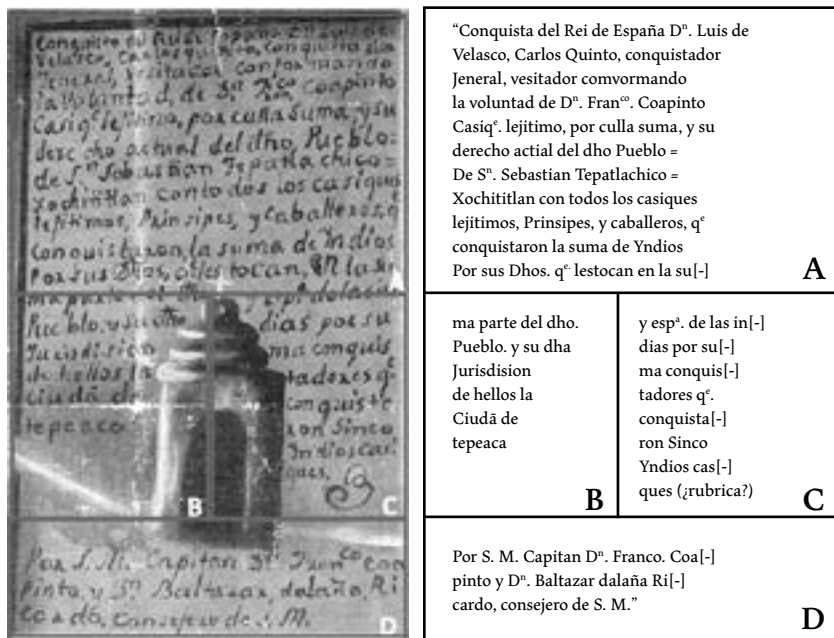 Conquista del Rei de España Luis de
Velasco, Carlos quinto, conquista dor
Jeneral, vesitador comformando
la voluntad, de Coapinto
Casiqe lejitimo, por culla suma, y su
derecho actual del dho, Pueblo=
de Sn Sebastian Tepatlachico=
Xochititlan con todos los casiques
lejitimos, Prinsipes, y Caballeros, qe
Conquistaron, la suma de Yndios
Por sus Dhos, les tocan, en la su
A
ma parte del
Pueblo. y su
Jurisdision
de hellos la
ciudā de
tepeaco
B
de las in
dias por su
ma conquis
tadores qe
conquista
ron Sinco
Yndios casi
ques,
C
Por S. M. Capitan Dn. Franco coa
pinto, y Dn. Baltazar, dalaña, Ri
cardo, Consejero de S. M.
D
“Conquista del Rei de España Dn. Luis de
Velasco, Carlos Quinto, conquistador
Jeneral, vesitador comvormando
la voluntad de Dn. Franco. Coapinto
Casiqe. lejitimo, por culla suma, y su
derecho actial del dho Pueblo =
De Sn. Sebastian Tepatlachico =
Xochititlan con todos los casiques
lejitimos, Prinsipes, y caballeros, qe
conquistaron la suma de Yndios
Por sus Dhos. qe. lestocan en la su[-]
A
ma parte del dho.
Pueblo. y su dha
Jurisdision
de hellos la
Ciudā de
tepeaca
B
y espa. de las in[-]
dias por su[-]
ma conquis[-]
tadores qe.
conquista[-]
ron Sinco
Yndios cas[-]
ques (¿rubrica?)
C
Por S. M. Capitan Dn. Franco. Coa[-]
pinto y Dn. Baltazar dalaña Ri[-]
cardo, consejero de S. M.”
D